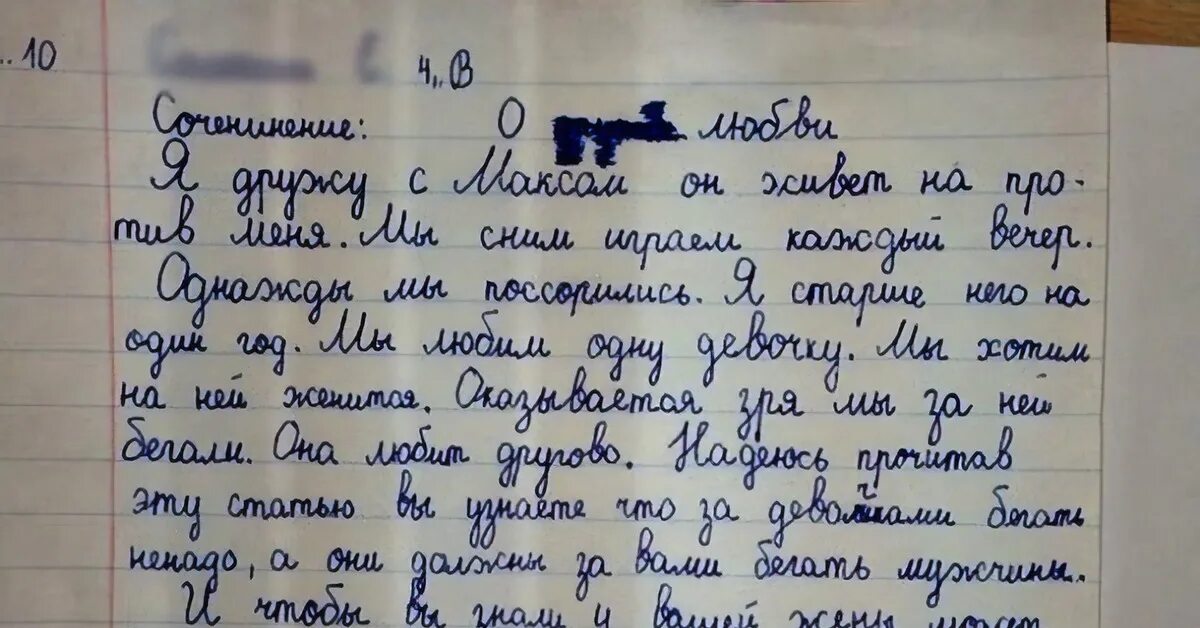 ..10
4„В
Сочениниение: О любви
Я дружу с Максом он живет на про-
тив меня. Мы сним играем каждый вечер.
Однажды мы поссорились. Я старше него на
один год. Мы любим одну девочку. Мы хотим
на ней женится. Оказывается зря мы за ней
бегали. Она любит другово. Надеюсь прочитав
эту статью вы узнаете что за девочками бегать
ненадо, а они должны за вами бегать мужчины.
И чтобы вы знали и вашей жены может